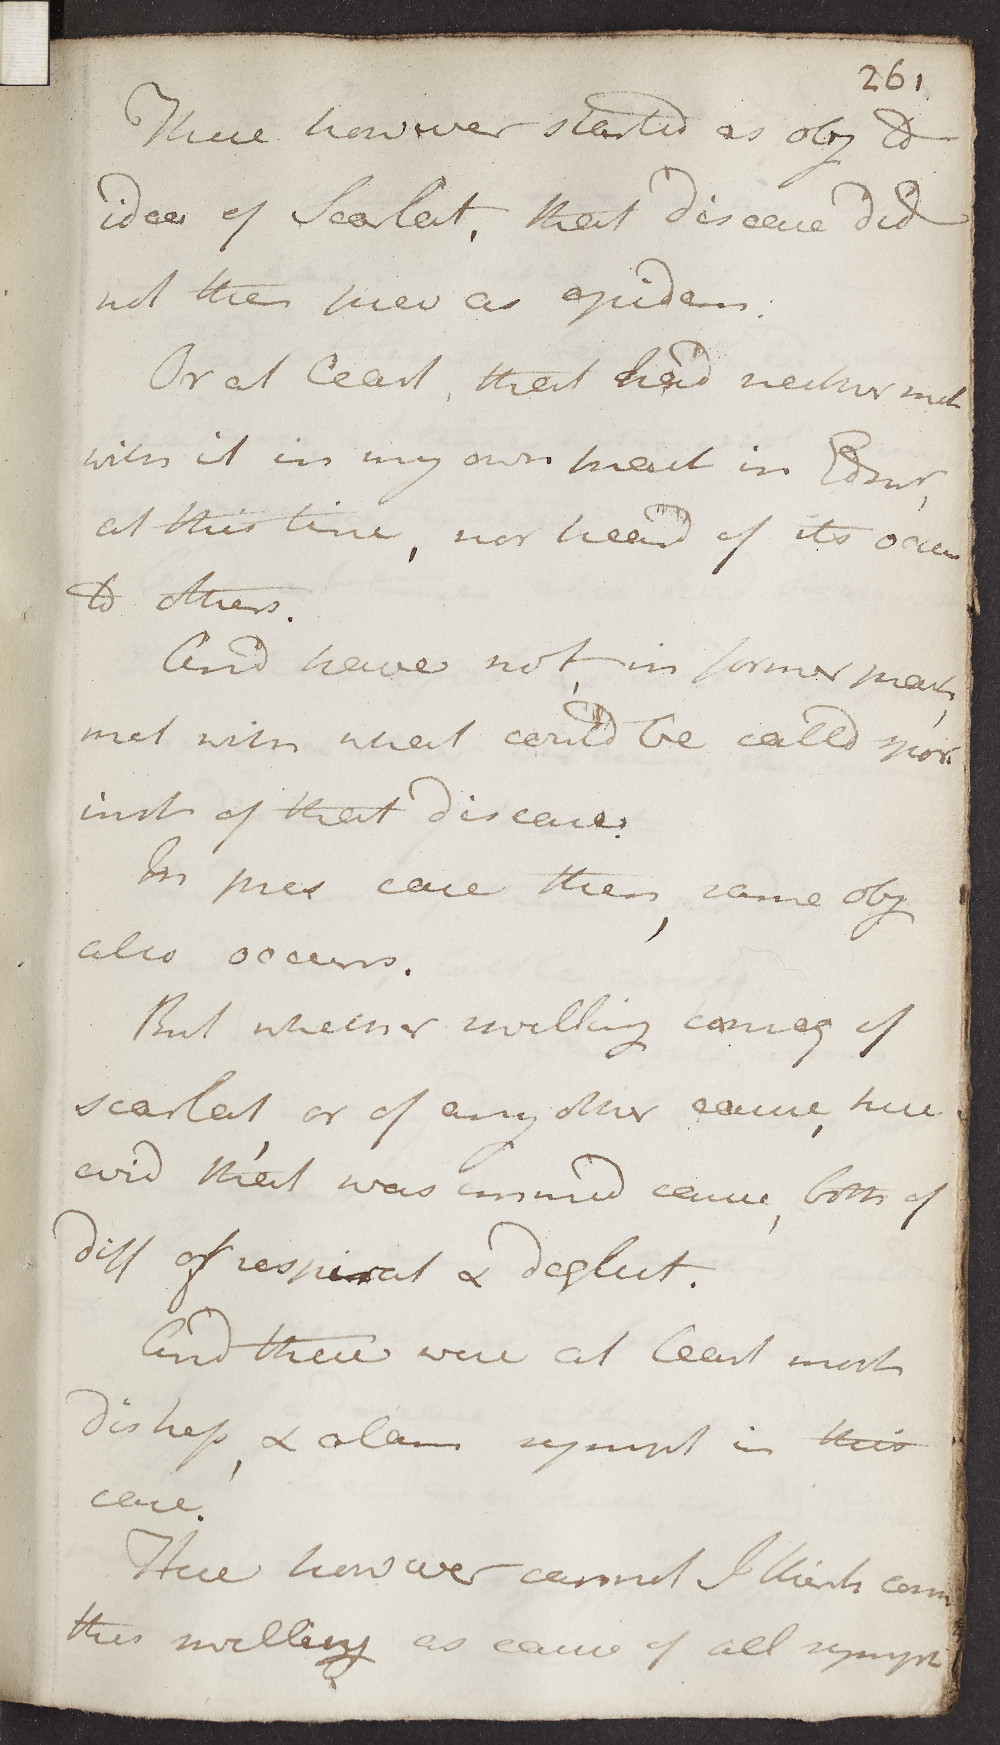 261
There however started as obj to
idea of Scarlat, that disease did
not then prev as epidem.
Or at least, that had neither met
with it in my own pract in Edinr,
at this time, nor heard of its occur
to others.
And have not, in former years,
met with what could be called spor
inst of that disease.
In pres case then, same obj
also occurs.
But whether swelling conseq of
scarlat, or of any other cause, here
evid that was immed cause, both of
diff of respirat & deglut.
And these were at least most
distress, & alarm sympt in this
case.
Here however cannot I think con
this swelling as cause of all sympt